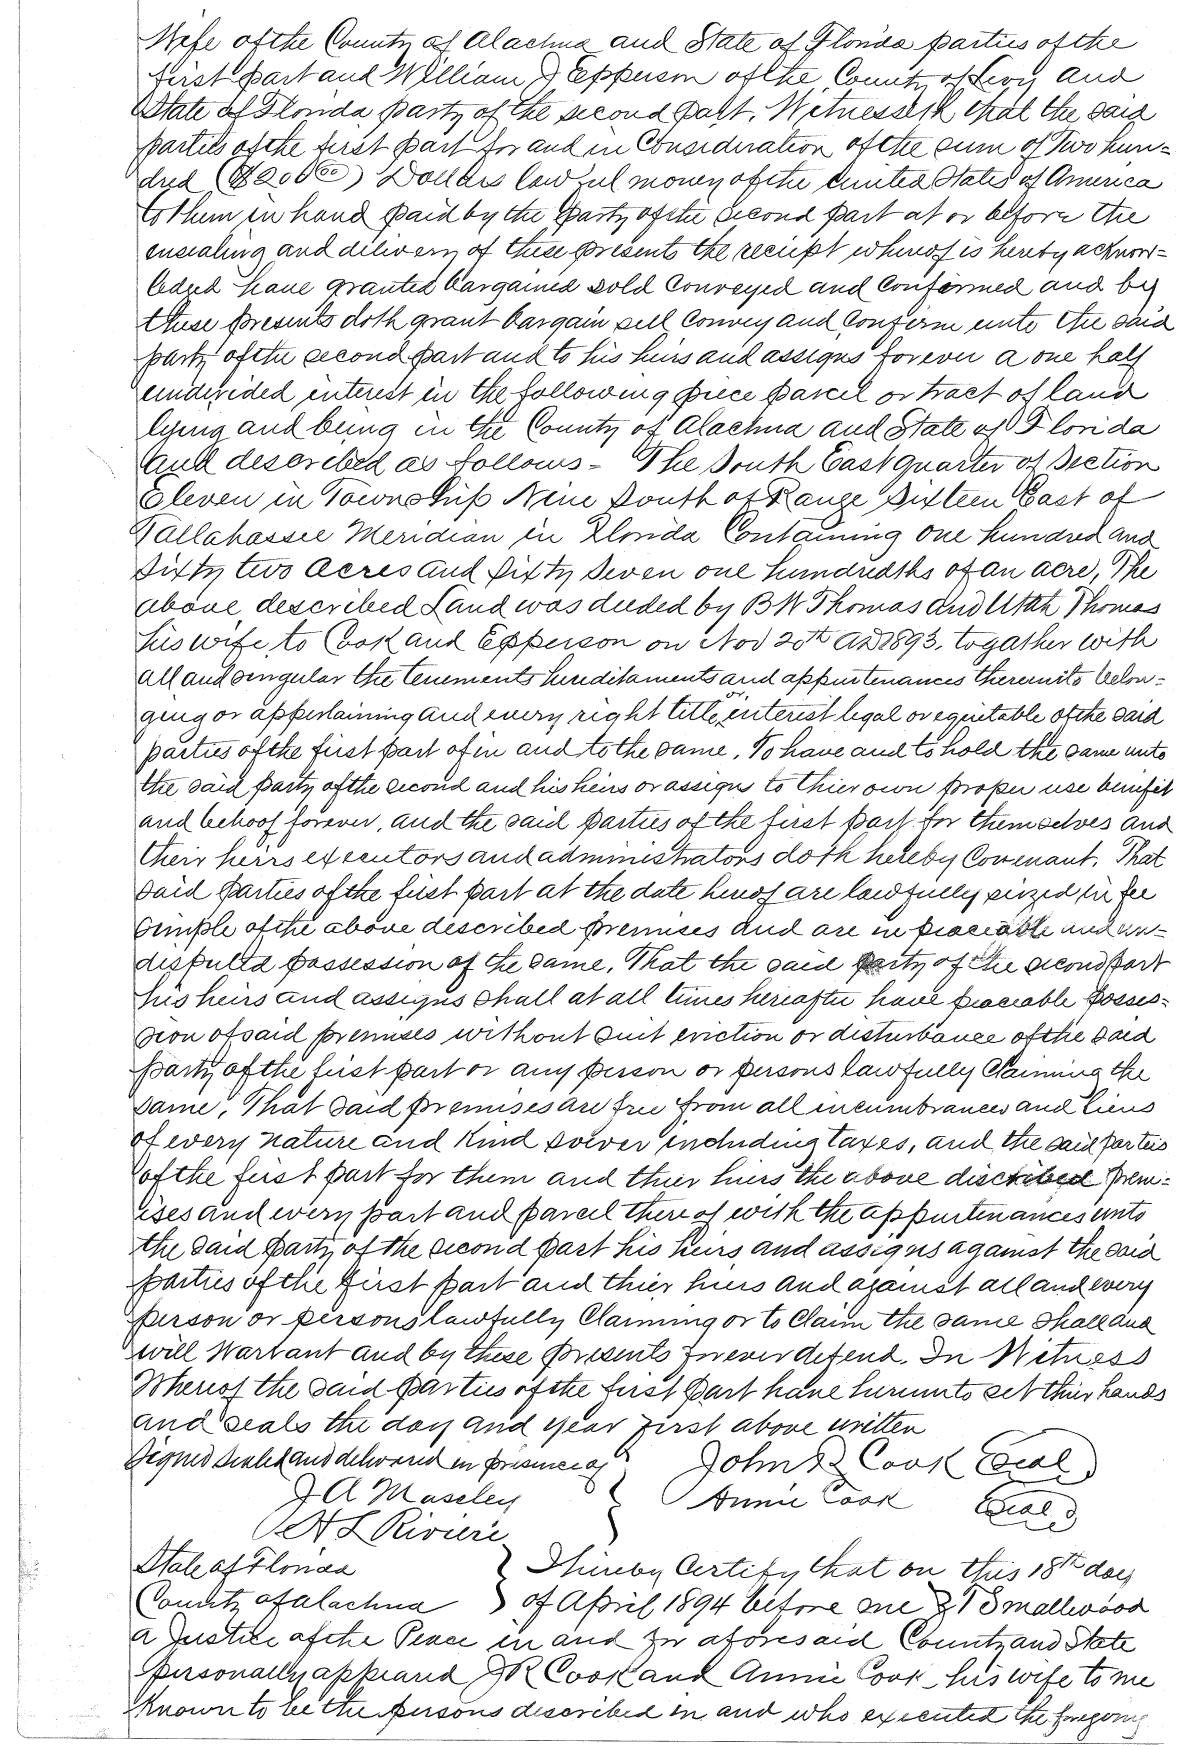 Wife of the County of Alachua and State of Florida parties of the
first part and William J Epperson of the County of Levy and
State of Florida party of the second part. Witnesseth that the said
parties of the first part for and in Consideration of the sum of Two hun-
dred ($200 00) Dollars lawful money of the united States of America
to them in hand paid by the party of the second part at or before the
ensealing and delivery of these presents the reciept whereof is hereby acknow-
ledged have granted bargained sold Conveyed and Confirmed and by
these presents doth grant bargain sell Convey and Confirm unto the said
party of the second part and to his heirs and assigns forever a one half
undivided interest in the following piece parcel or tract of land
lying and being in the County of Alachua and State of Florida
and described as follows - The South East quarter of Section
Eleven in Township Nine South of Range Sixteen East of
Tallahassee Meridian in Florida Containing one hundred and
Sixty two Acres and Sixty Seven one hundredths of an acre, The
above described Land was deeded by B W Thomas and Utah Thomas
his wife to Cook and Epperson on Nov 20th AD 1893. togather with
all and singular the tenements hereditaments and appurtenances thereunto belon-
ging or appertaining and every right title, or interest legal or equitable of the said
parties of the first part of in and to the same. To have and to hold the same unto
the said party of the second and his heirs or assigns to thier own proper use benifit
and behoof forever, and the said parties of the first part for themselves and
their heirs executors and administrators doth hereby Covenant. That
said parties of the first part at the date hereof are lawfully seized in fee
simple of the above described premises and are in peaceable and un-
disputed possession of the same. That the said party of the second part
his heirs and assigns shall at all times hereafter have peaceable posses-
sion of said premises without suit eviction or disturbance of the said
party of the first part or any person or persons lawfully Claiming the
same. That said premises are free from all incumbrances and liens
of every nature and Kind soever including taxes, and the said parteis
of the first part for them and thier hiers the above discribed prem-
ises and every part and parcel there of with the appurtenances unto
the said party of the second part his heirs and assigns against the said
parties of the first part and thier hiers and against all and every
person or persons lawfully Claiming or to Claim the same shall and
will Warrant and by these presents forever defend. In Witness
Whereof the said parties of the first part have hereunto set thier hands
and seals the day and year first above written
Signed sealed and delivered in presence of John R Cook Seal
J A Maseley Annie Cook Seal
H L Riviere
State of Florida I hereby Certify that on this 18th day
County of Alachua of April 1894 before me Smallwood
a Justice of the Peace in and for aforesaid County and State
personally appeared J R Cook and Annie Cook his wife to me
Known to be the persons described in and who executed the foregoing